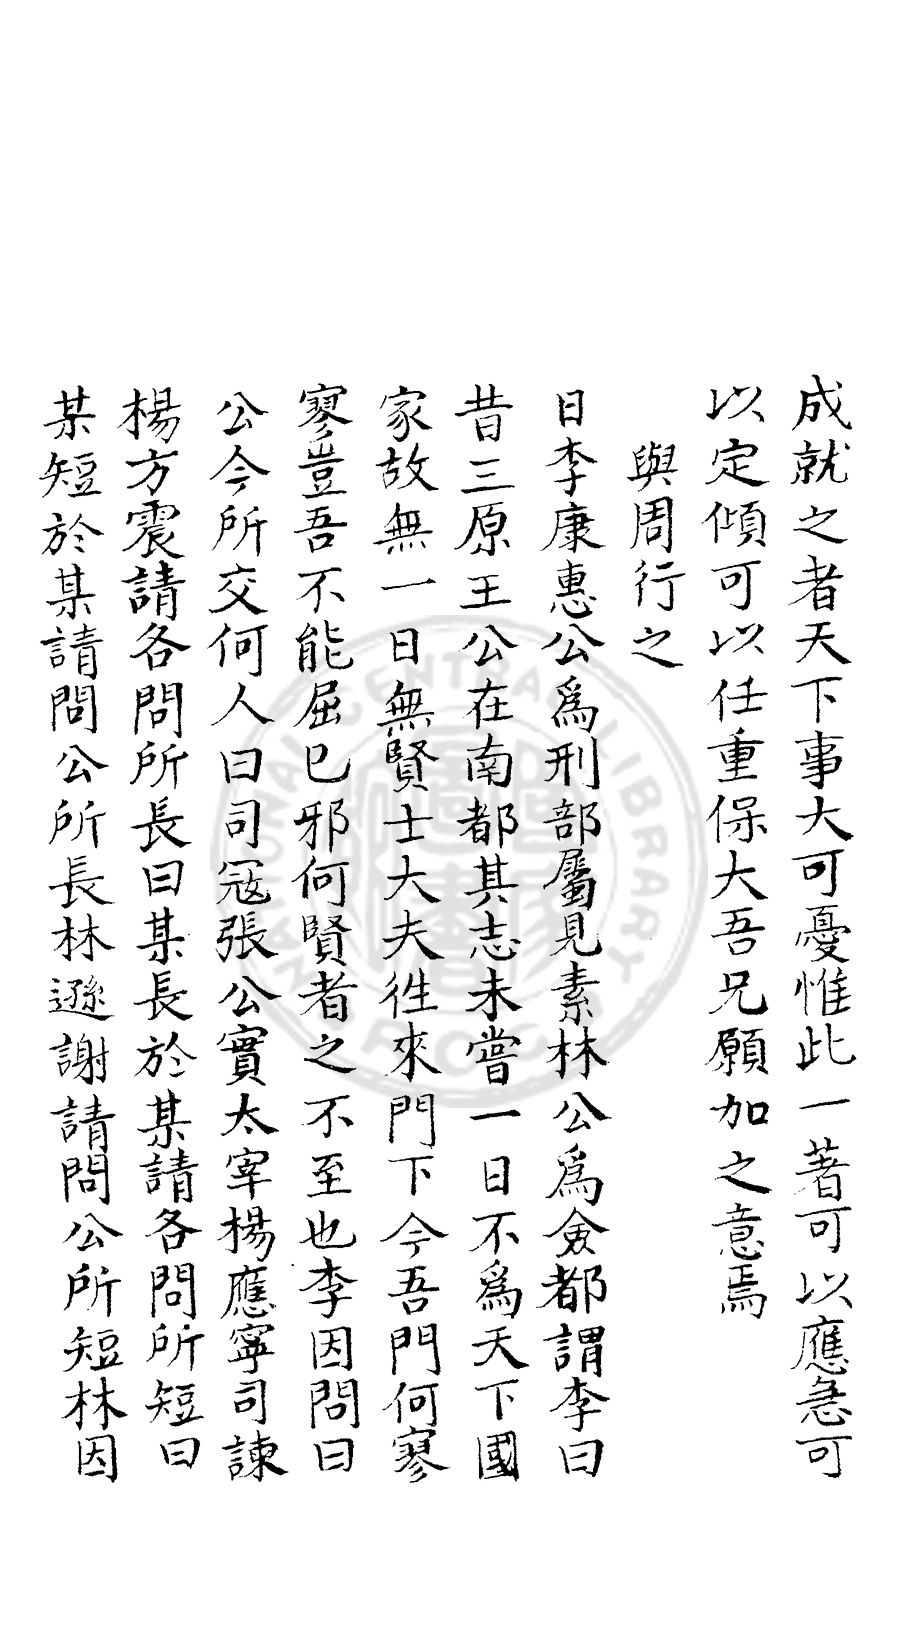 成就之者天下事大可憂惟此一著可以應急可
以定傾可以任重保大吾兄願加之意焉
與周行之
日李康惠公爲刑部屬見素林公爲僉都謂李曰
昔三原王公在南都其志未嘗一日不爲天下國
家故無一日無賢士大夫徃來門下今吾門何寥
寥豈吾不能屈已邪何賢者之不至也李因問曰
公今所交何人曰司冦張公實太宰楊應寧司諫
楊方震請各問所長曰某長於某請各問所短曰
某短於某請問公所長林遜謝請問公所短林因
NATIONAL CENTRAL LIBRARY